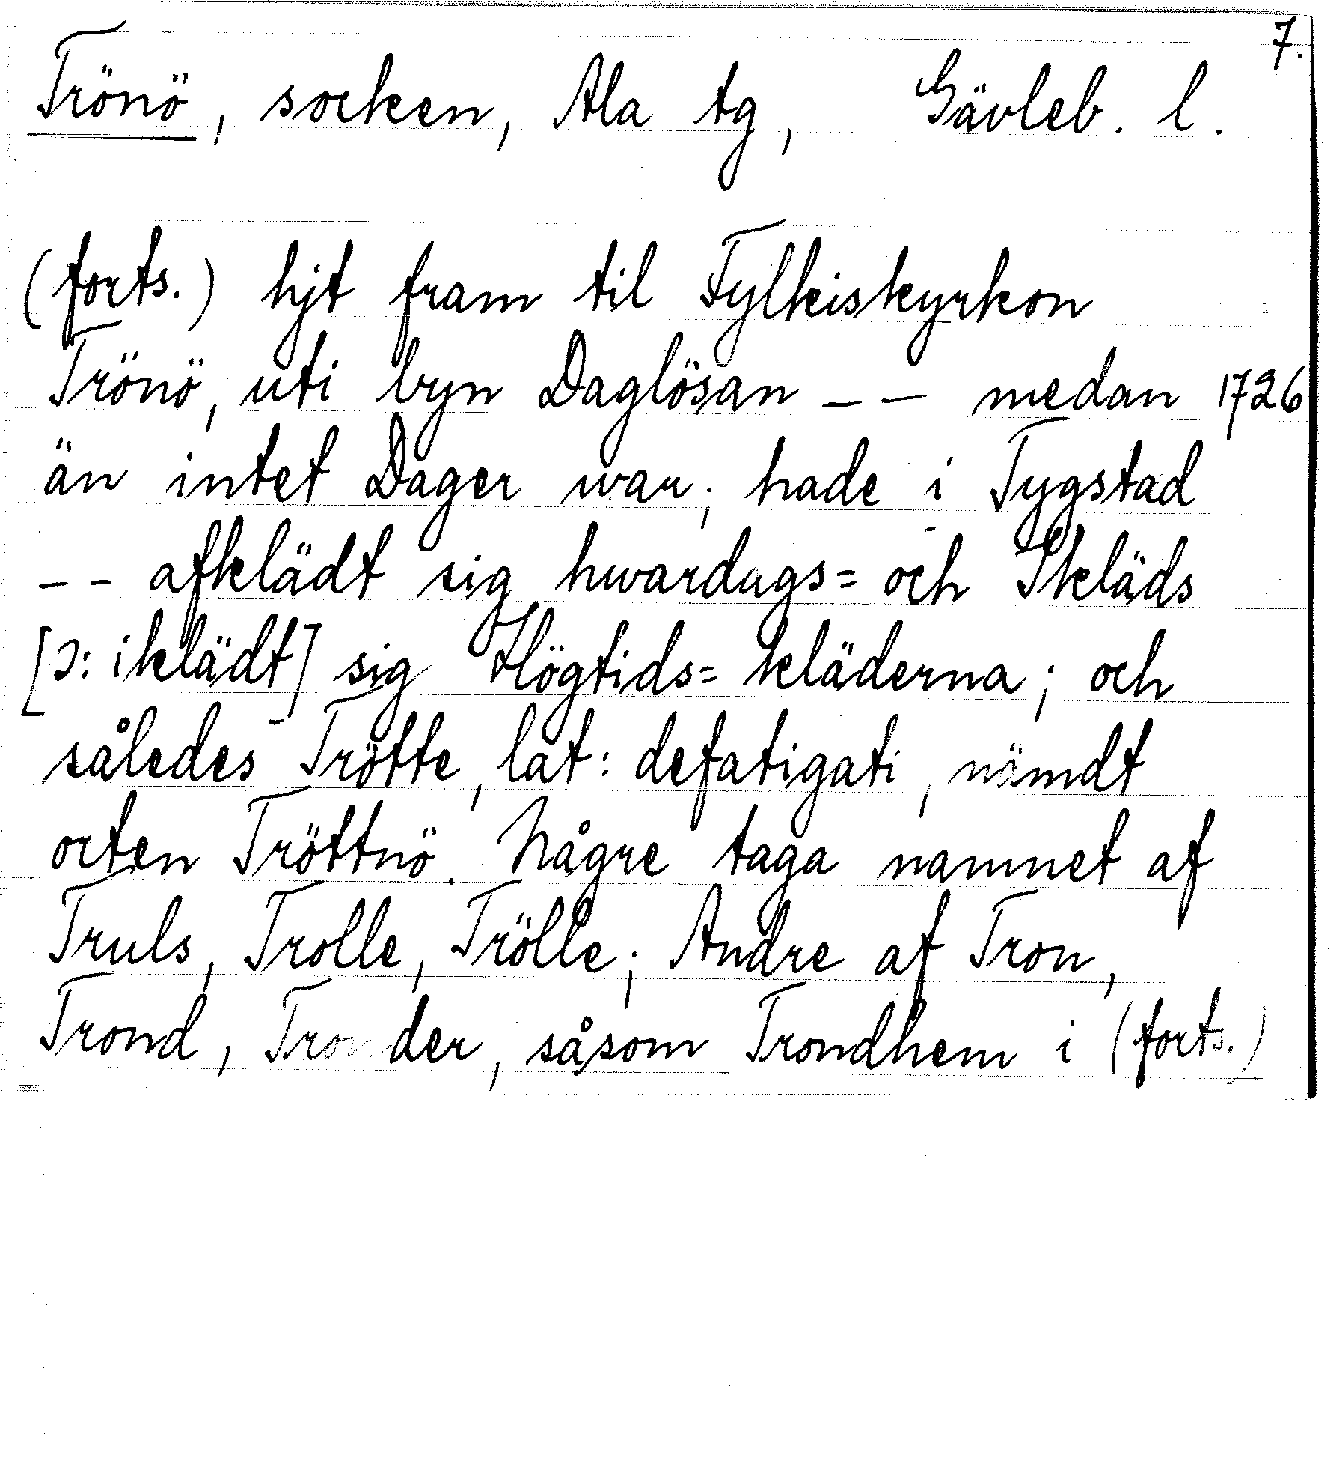 7.
Trönö, socken, Ala tg, Gävleb. l.
(forts.) hjt fram til Fylkiskyrkon
Trönö, uti byn Daglösan – – medan 1726
än intet Dager war; hade i Tygstad
– – afklädt sig hwardags= och Ikläds
[ɔ: iklädt] sig Högtids= kläderna; och
således Trötte, lat: defatigati, nämdt
orten Tröttnö. Någre taga namnet af
Truls, Trolle, Trölle; Andre af Tron,
Trond, Tronder, såsom Trondhem i (forts.)